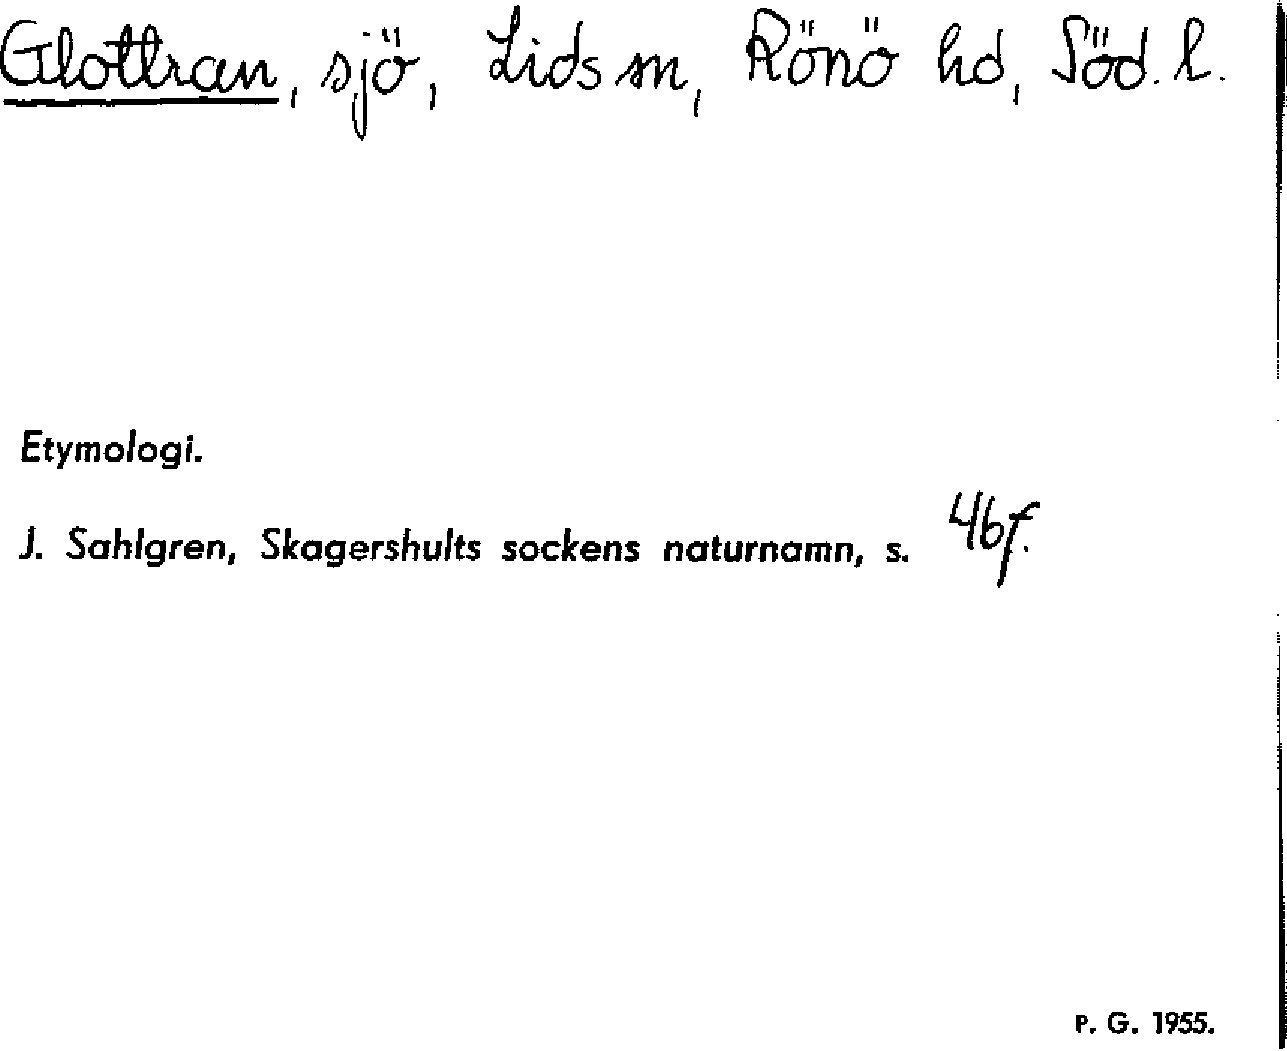 Glottran, sjö, Lids sn, Rönö hd, Söd. l.
Etymologi.
J. Sahlgren, Skagershults sockens naturnamn, s. 46f.
P. G. 1955.